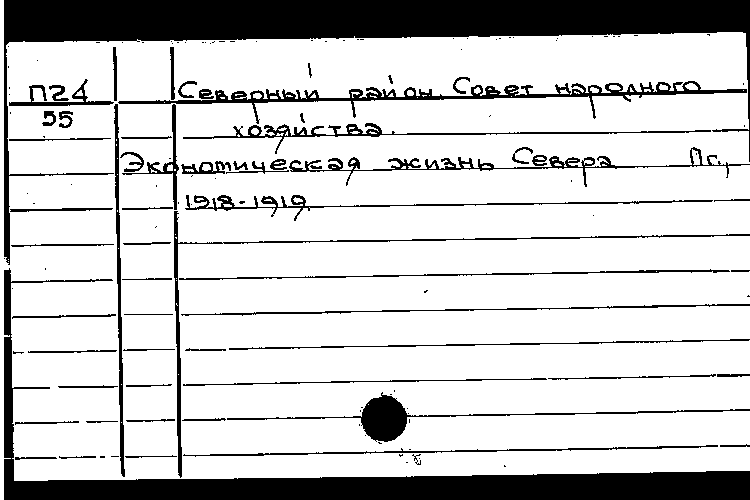 П24 Северный район. Совет народного
55 хозяйства.
Экономическая жизнь Севера Пг.,
1918-1919